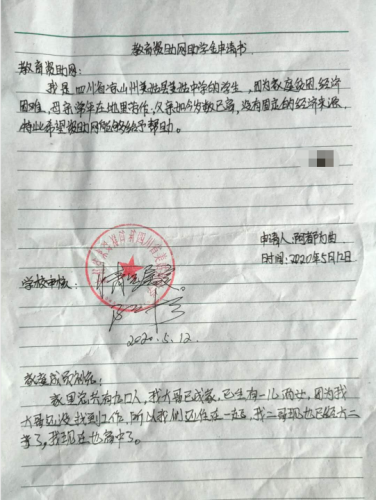 教育资助网助学金申请书
教育资助网:
我是四川省凉山州美姑县美姑中学的学生,因为家庭贫困,经济
困难,母亲常年在地里劳作,父亲如今岁数已高,没有固定的经济来源,
特此希望资助网能够给予帮助。
申请人:阿都
时间:2020年5月12日
学校审核:
情况属实。
2020.5.12
家庭成员
家里总共有九口人,我大哥已成家,已生有一儿两女,因为我
大哥还没找到工作,所以我们还住在一起,我二哥现也已经大二
了,我现在也高中了。